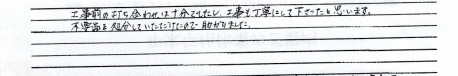 工事前の打ち合わせは十分でしたし、工事も丁寧にして下さったと思います。
不要品を処分していただけたので助かりました。